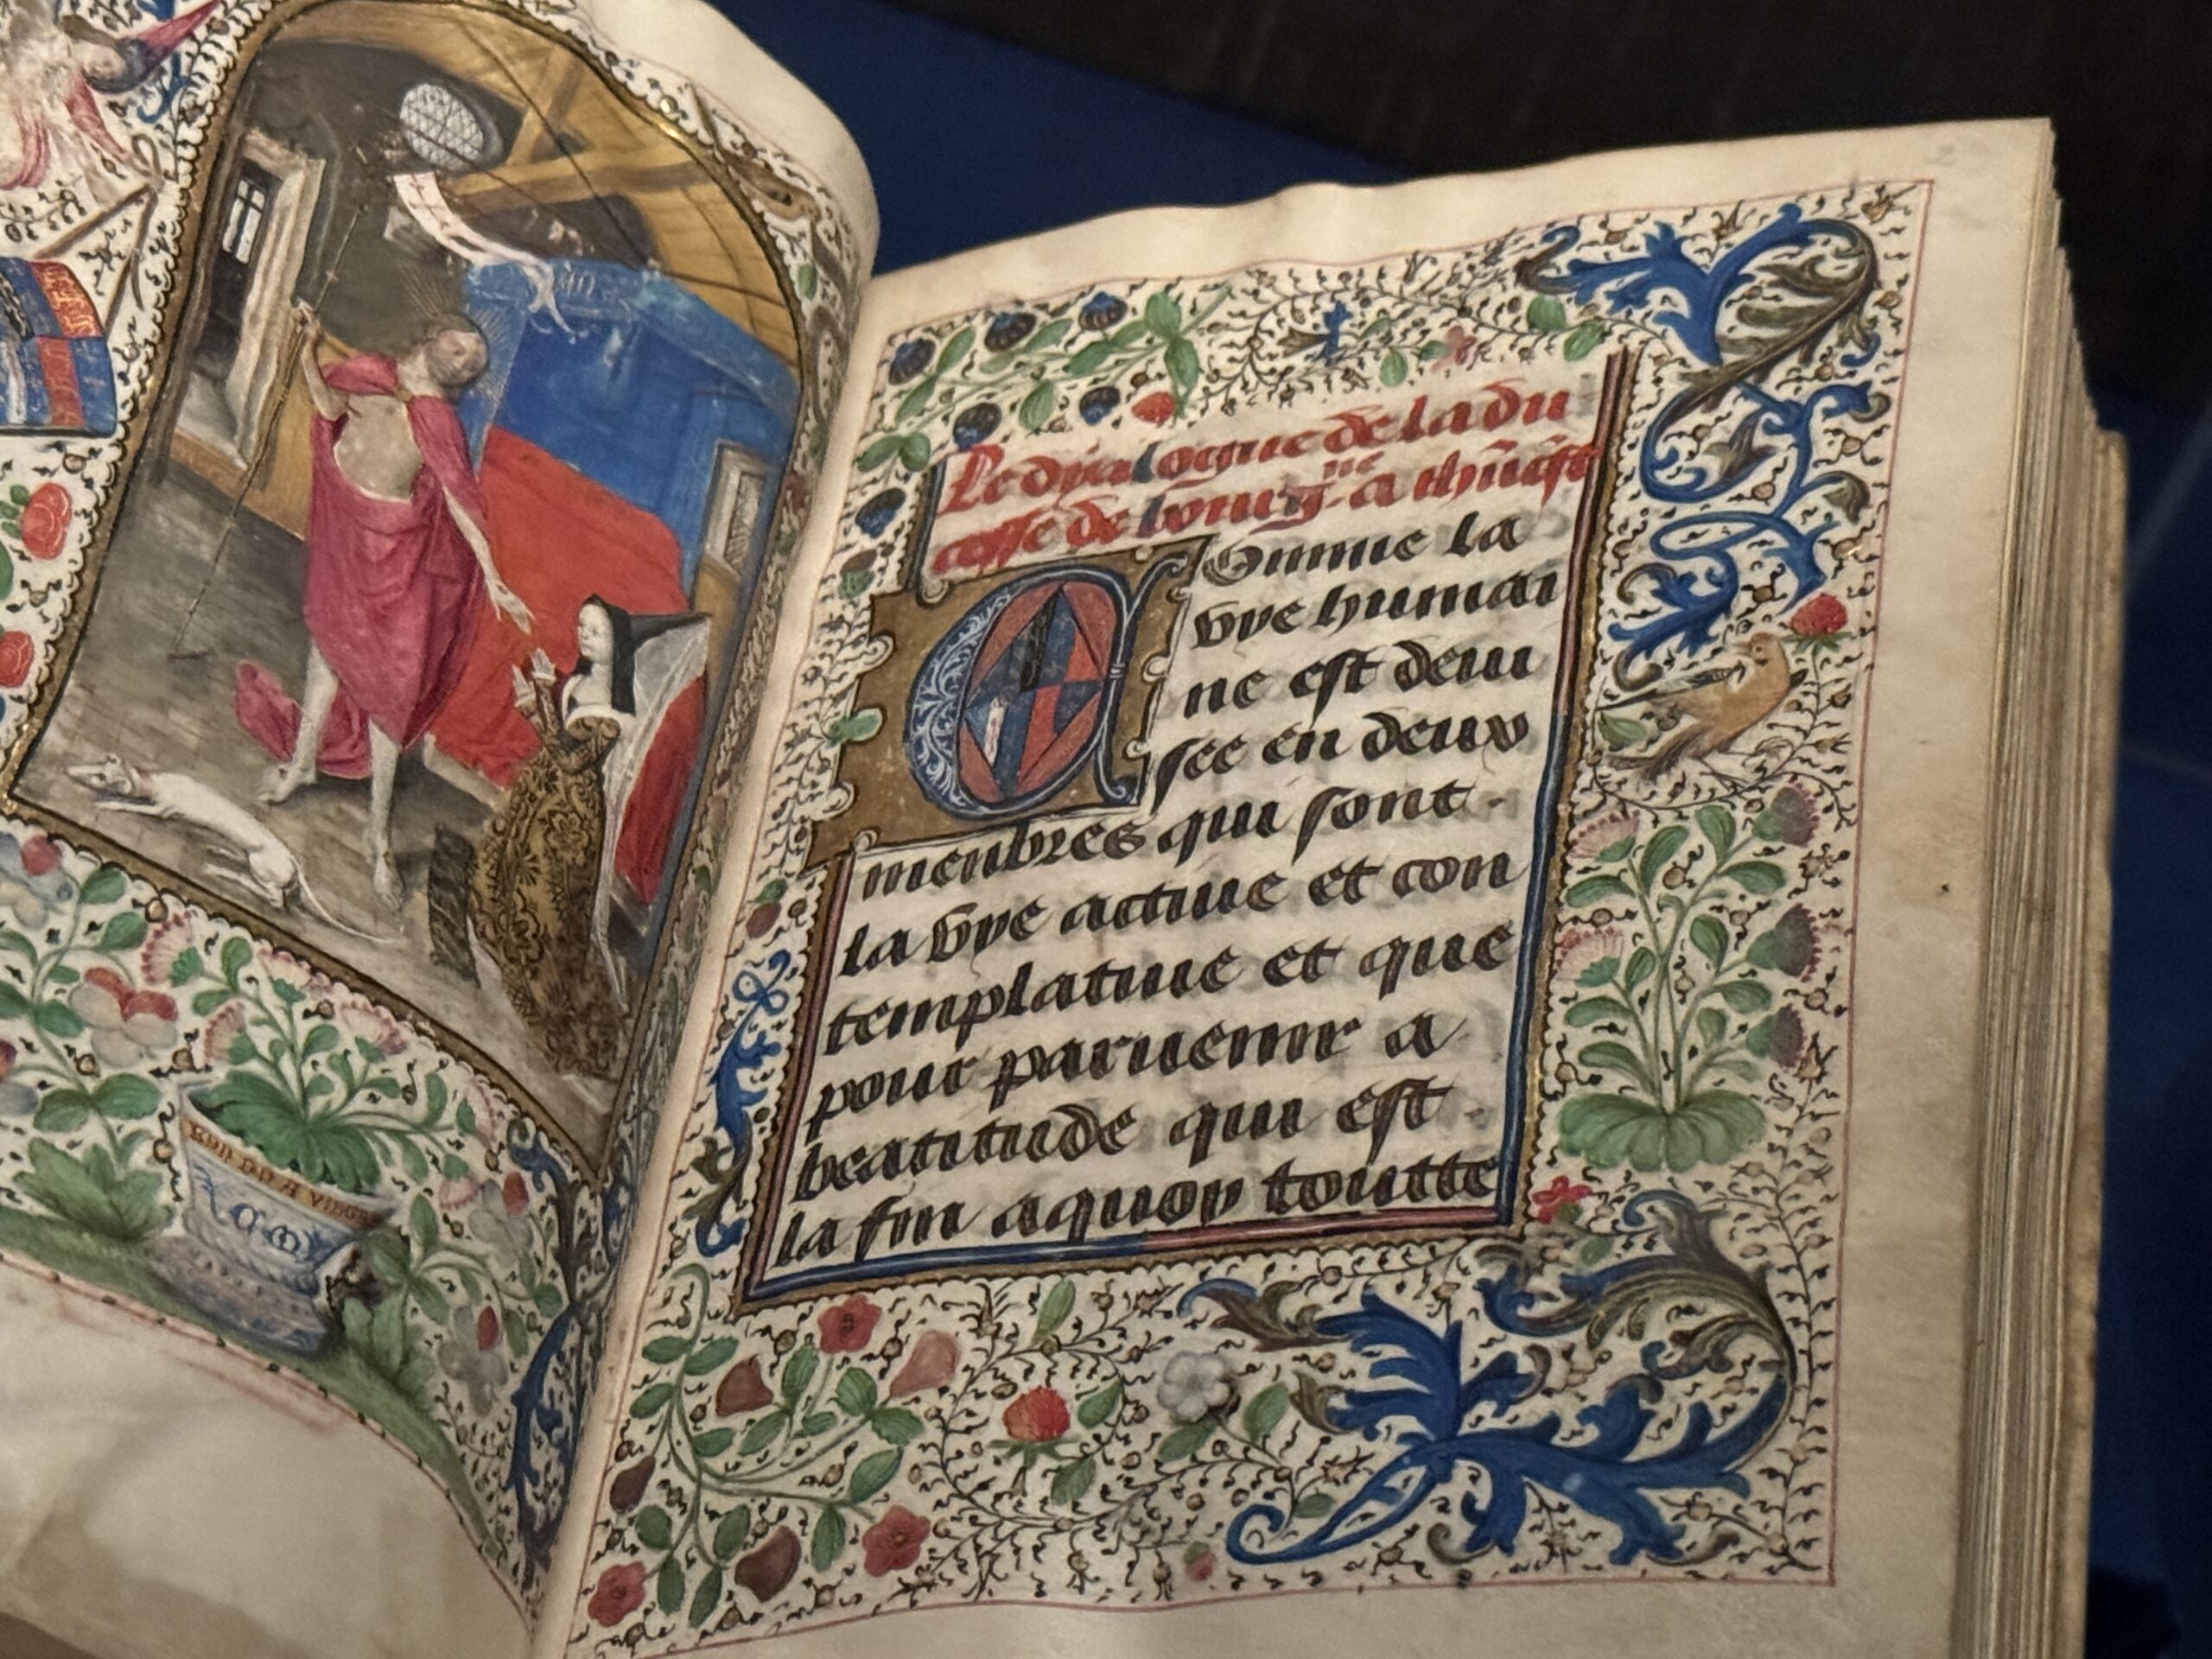 Le dyalogue de la du
cesse de bourg.ne a ih̄ūcst
Comme la
vye humai
ne est deui
see en deux
menbres qui sont
la vye actiue et con
templatiue et que
pour paruenir a
beatitude qui est
la fin a quoy toutte